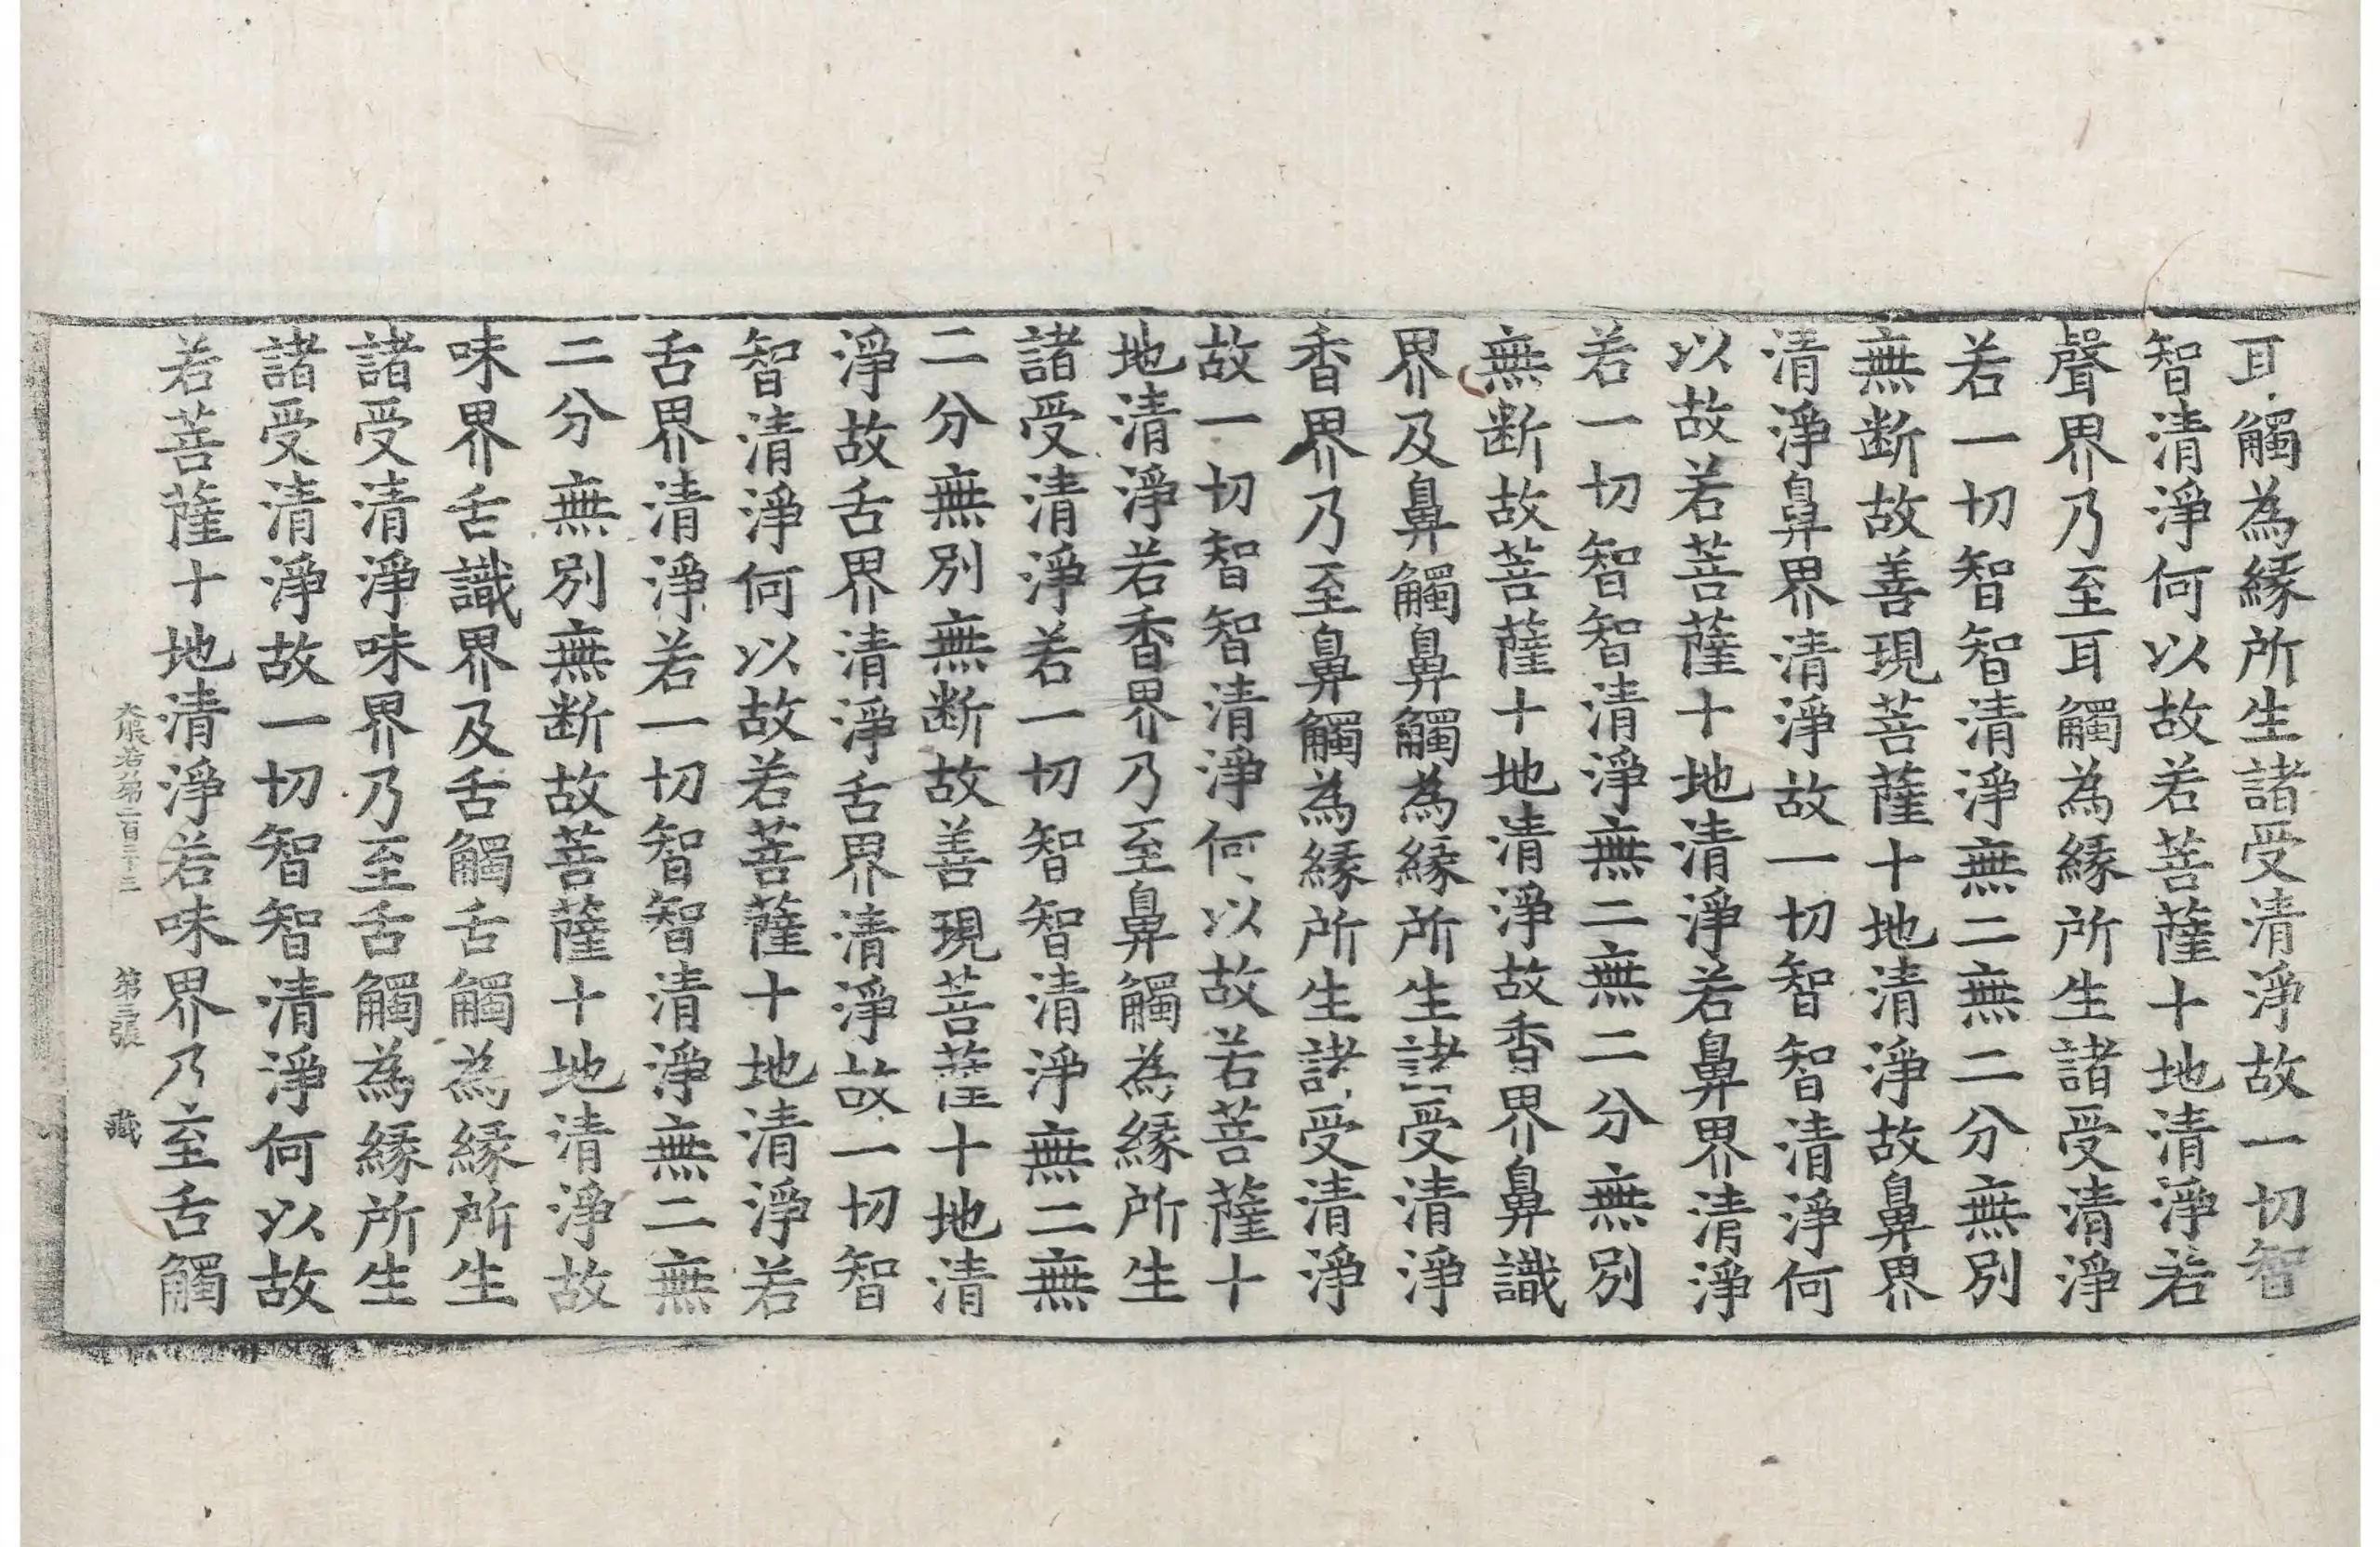 耳觸為緣所生諸受清淨故一切智
智清淨何以故若菩薩十地清淨若
聲界乃至耳觸為緣所生諸受清淨
若一切智智清淨無二無二分無別
無断故善現菩薩十地清淨故鼻界
清淨鼻界清淨故一切智智清淨何
以故若菩薩十地清淨若鼻界清淨
若一切智智清淨無二無二分無別
無断故菩薩十地清淨故香界鼻識
界及鼻觸鼻觸為緣所生諸受清淨
香界乃至鼻觸為緣所生諸受清淨
故一切智智清淨何以故若菩薩十
地清淨若香界乃至鼻觸為緣所生
諸受清淨若一切智智清淨無二無
二分無別無断故善現菩薩十地清
淨故舌界清淨舌界清淨故一切智
智清淨何以故若菩薩十地清淨若
舌界清淨若一切智智清淨無二無
二分無別無断故菩薩十地清淨故
味界舌識界及舌觸舌觸為緣所生
諸受清淨味界乃至舌觸為緣所生
諸受清淨故一切智智清淨何以故
若菩薩十地清淨若味界乃至舌觸
大般若第二百三十三 第三張 藏